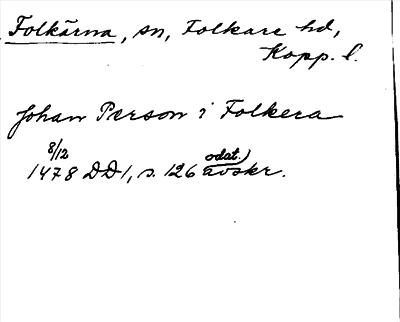 Folkärna, sn, Folkare hd,
Kopp. l.
Johan Person i Folkera
8/12 odat.)
1478 DD1, s. 126 avskr.